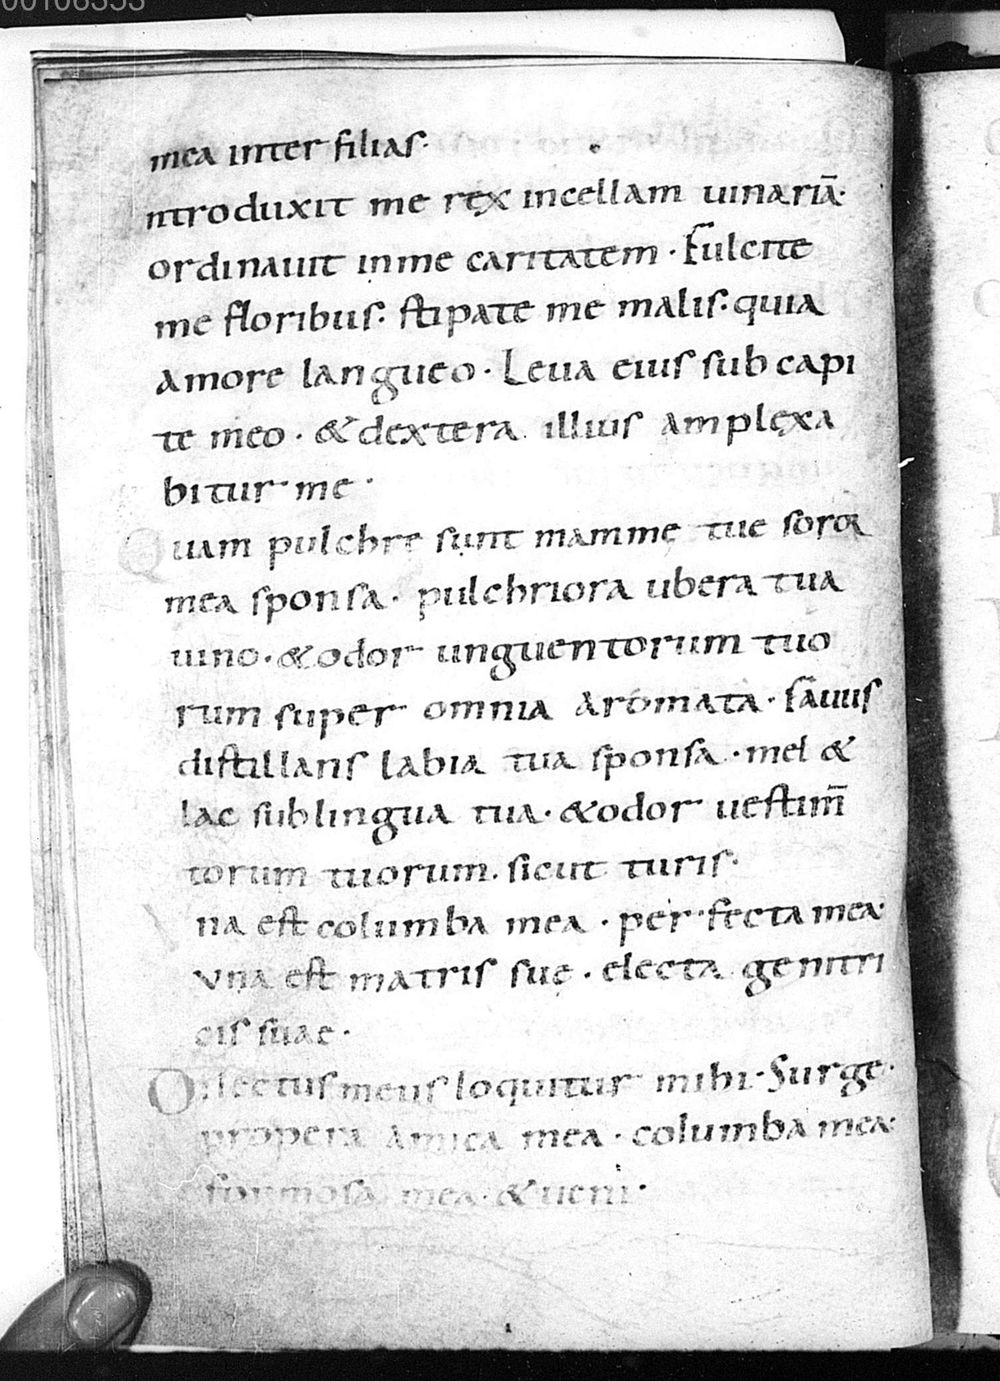 00106353
mea inter filias·
ntroduxit me ręx incellam uinariā·
ordinauit inme caritatem · Fulcite
me floribus· stipate me malis· quia
amore langueo · Leua eius sub capi
te meo · &dextera illius amplęxa
bitur me ·
Quam pulchre sunt mammę tue soror
mea sponsa · pulchriora ubera tua
uino · &odor unguentorum tuo
rum super omnia aromata · fauus
distillans labia tua sponsa · mel &
lac sublingua tua · &odor uestim̄
torum tuorum · sicut turis·
na est columba mea · perfecta mea·
vna est matris suę · electa genitri
cis suae ·
Dilectus meus loquitur mihi · Surge·
propera amica mea · columba mea·
formosa mea · &ueni ·